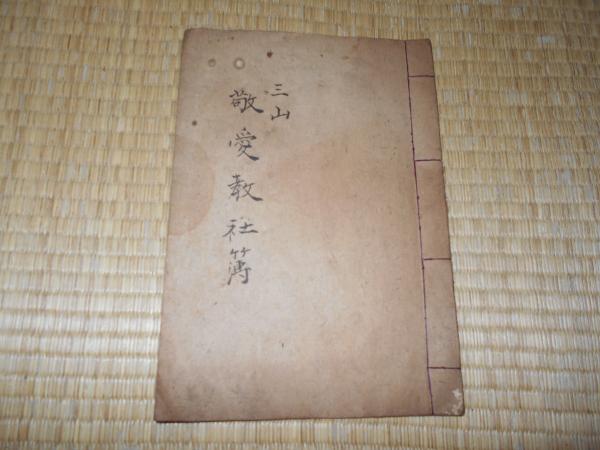 三山
敬愛教社簿